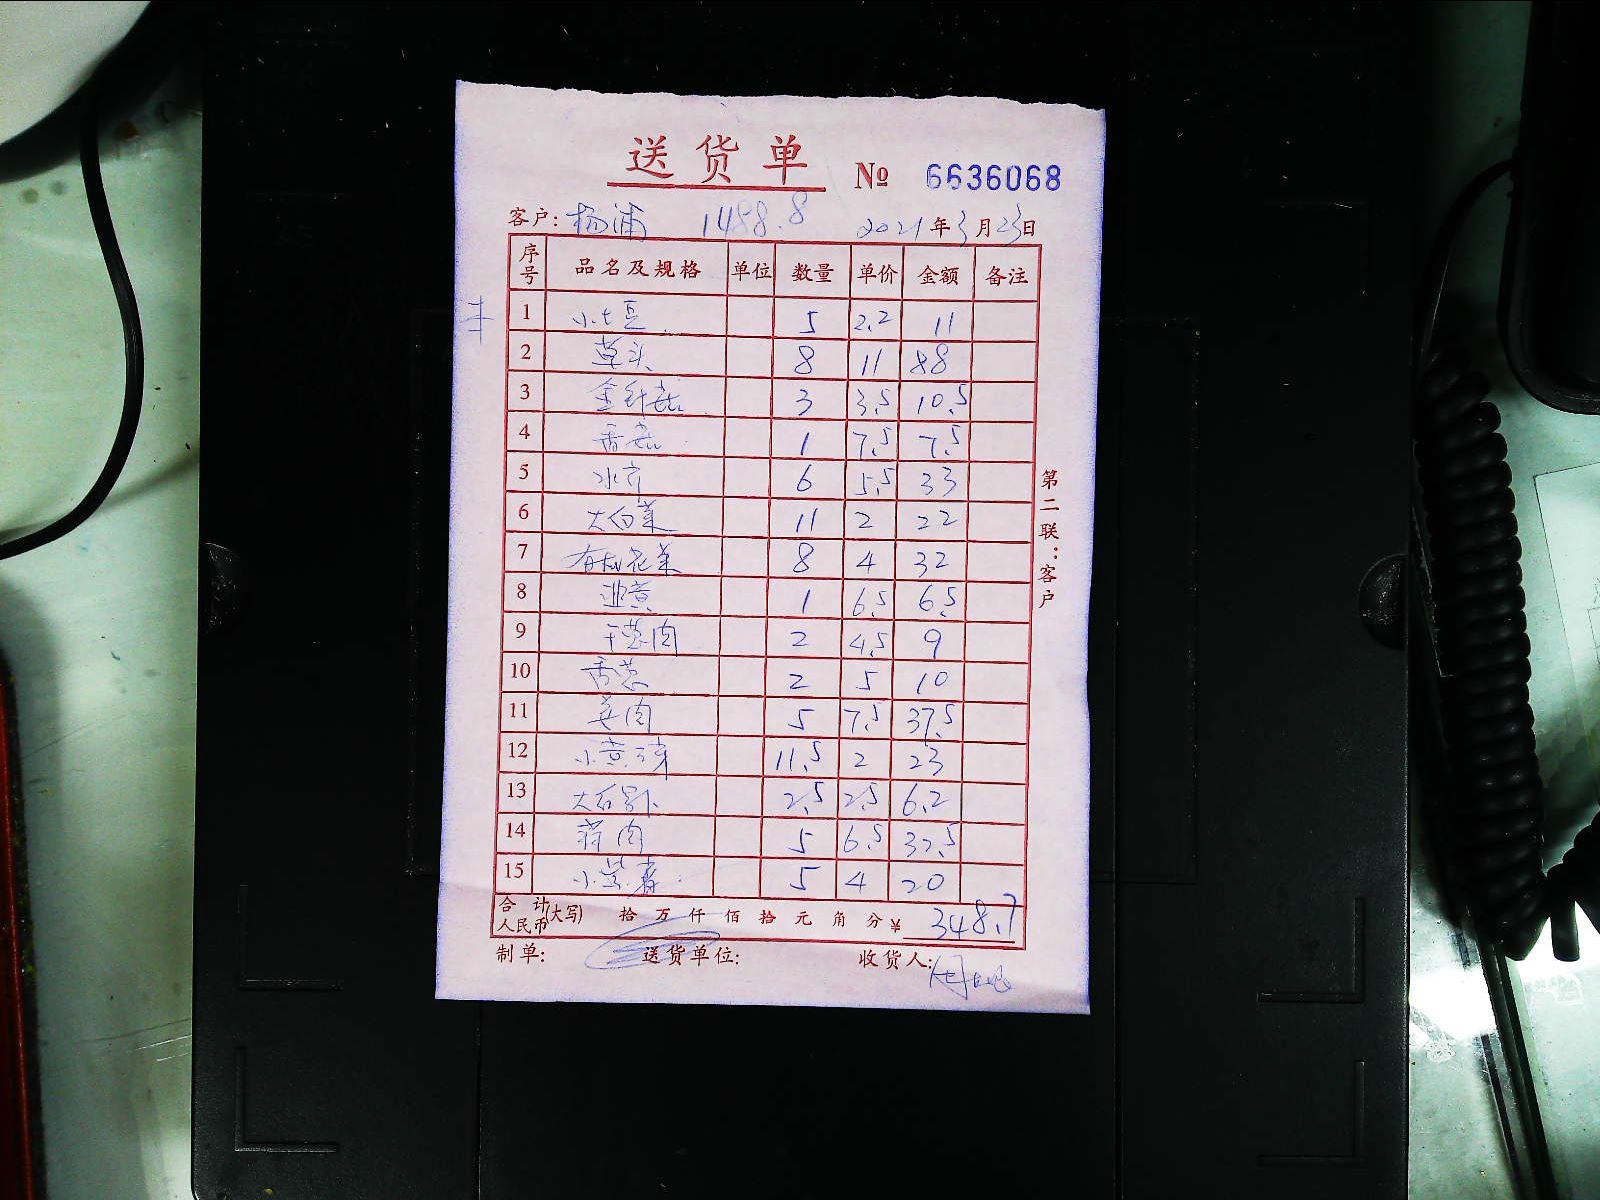 送货单 № 6636068
客户: 杨浦 1488.8 2021年3月23日
序号 品名及规格 单位 数量 单价 金额 备注
1 小土豆 5 2.2 11
2 草头 8 11 88
3 金针菇 3 3.5 10.5
4 香菇 1 7.5 7.5
5 水芹 6 5.5 33
6 大白菜 11 2 22
7 有机花菜 8 4 32
8 韭黄 1 6.5 6.5
9 干葱肉 2 4.5 9
10 香葱 2 5 10
11 姜肉 5 7.5 37.5
12 小黄芽 11.5 2 23
13 大白萝卜 2.5 2.5 6.2
14 蒜肉 5 6.5 32.5
15 小紫薯 5 4 20
合计人民币(大写) 拾 万 仟 佰 拾 元 角 分 ¥ 348.7
制单: 送货单位: 收货人:
第二联:客户